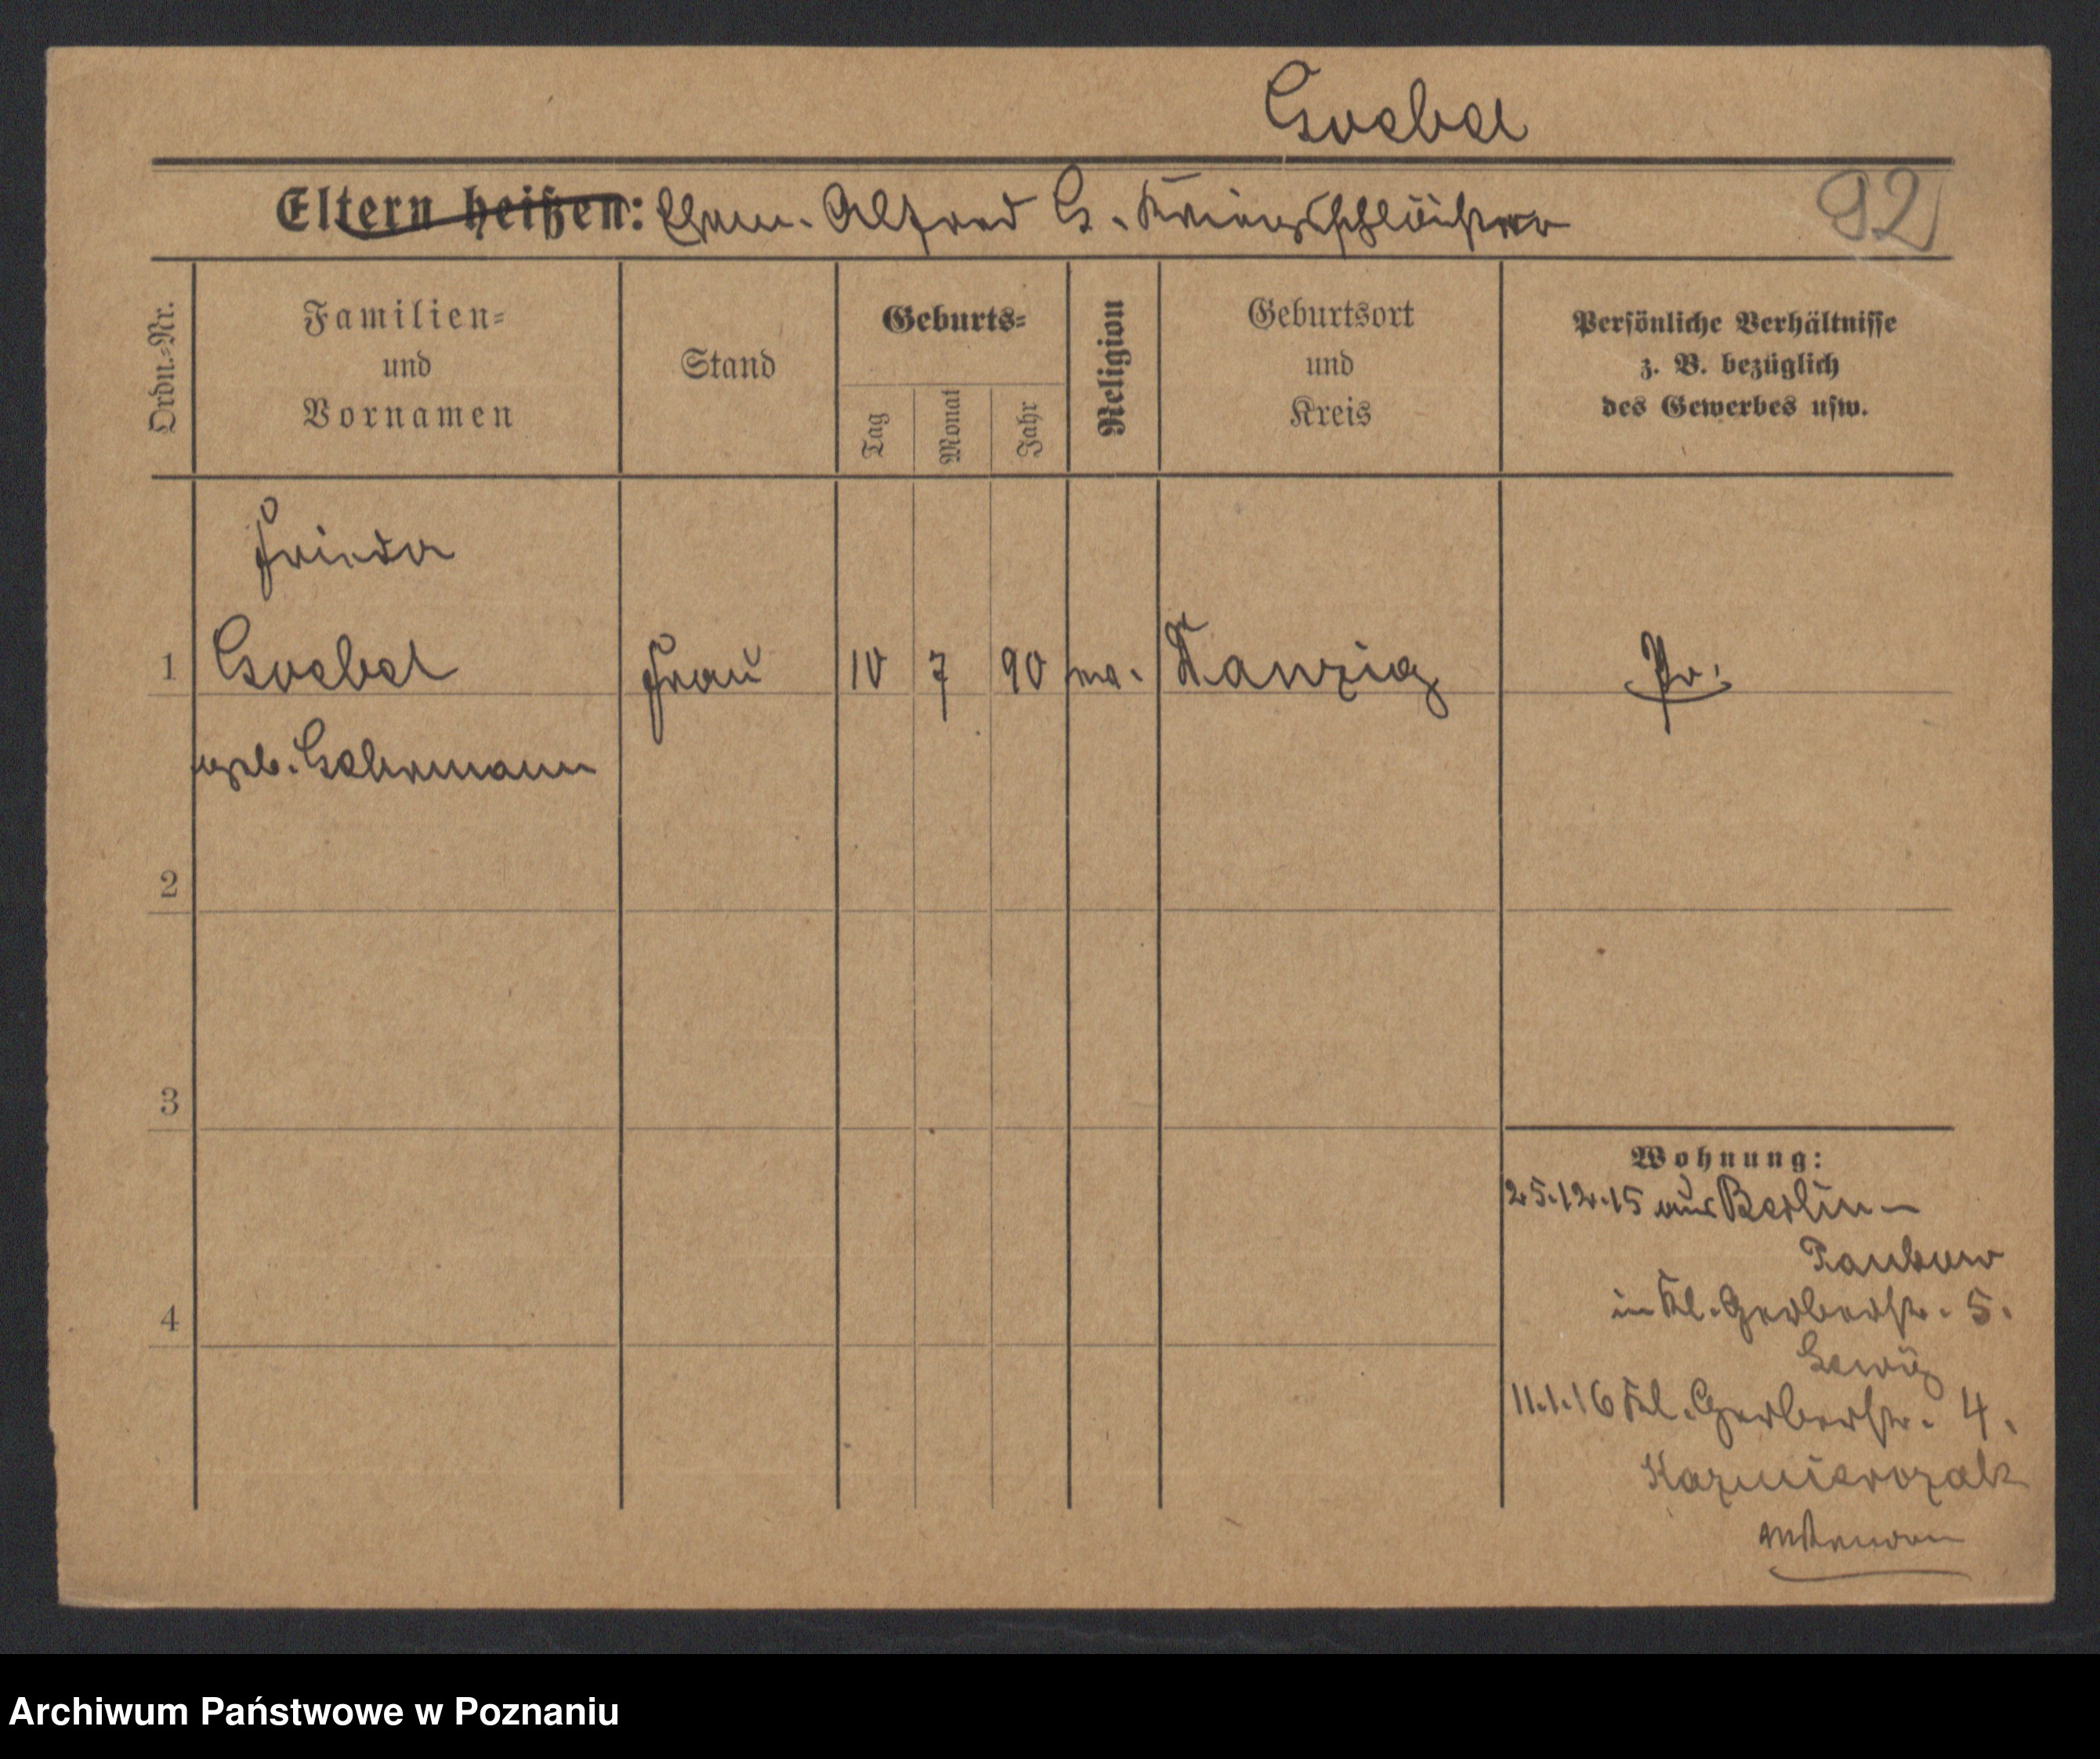 Goebel
Eltern heißen: Ehem. Alfred G. Kriegsschlosser 92
Ordn.-Nr.
Familien-
und
Vornamen
Stand
Geburts-
Tag
Monat
Jahr
Religion
Geburtsort
und
Kreis
Persönliche Verhältnisse
z. B. bezüglich
des Gewerbes usw.
Frieda
1 Goebel Frau 10 7 90 ev. Danzig Pr.
geb. Gehrmann
2
3
4
Wohnung:
25.12.15 aus Berlin-
Pankow
in Kl. Gerberstr. 5.
11.1.16 Kl. Gerberstr. 4.
Kazmierczak